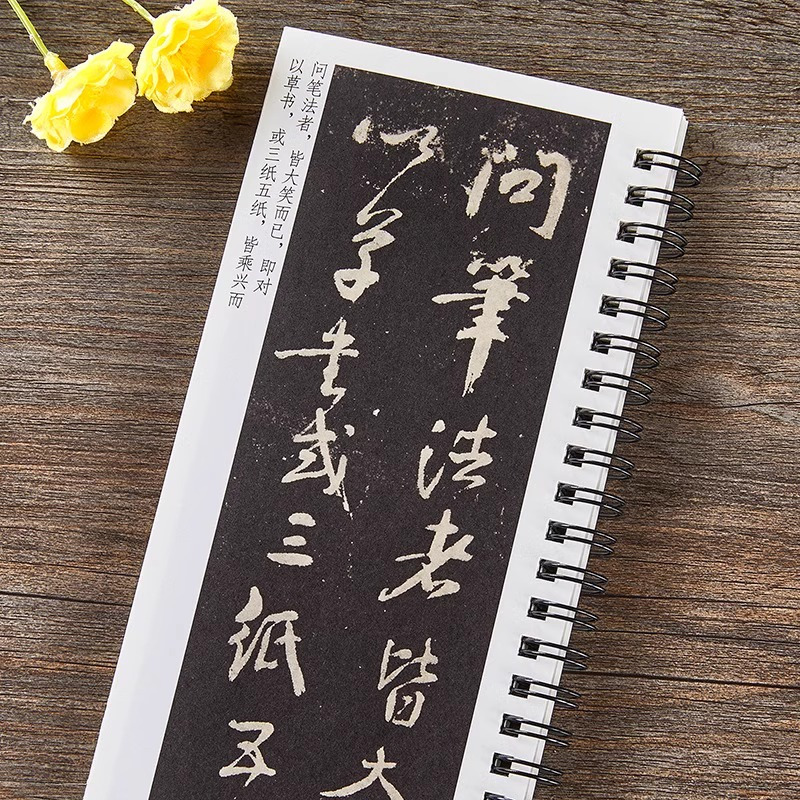 问笔法者，皆大笑而已，即对
以草书，或三纸五纸，皆乘兴而
问筆法者皆大
以草书或三纸五